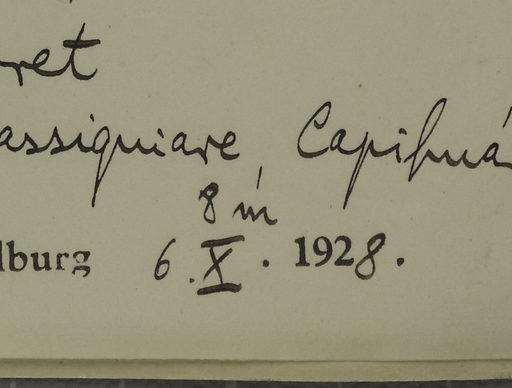 ret
assiquiare, Capihuá
8 m
lburg 6.X. 1928.